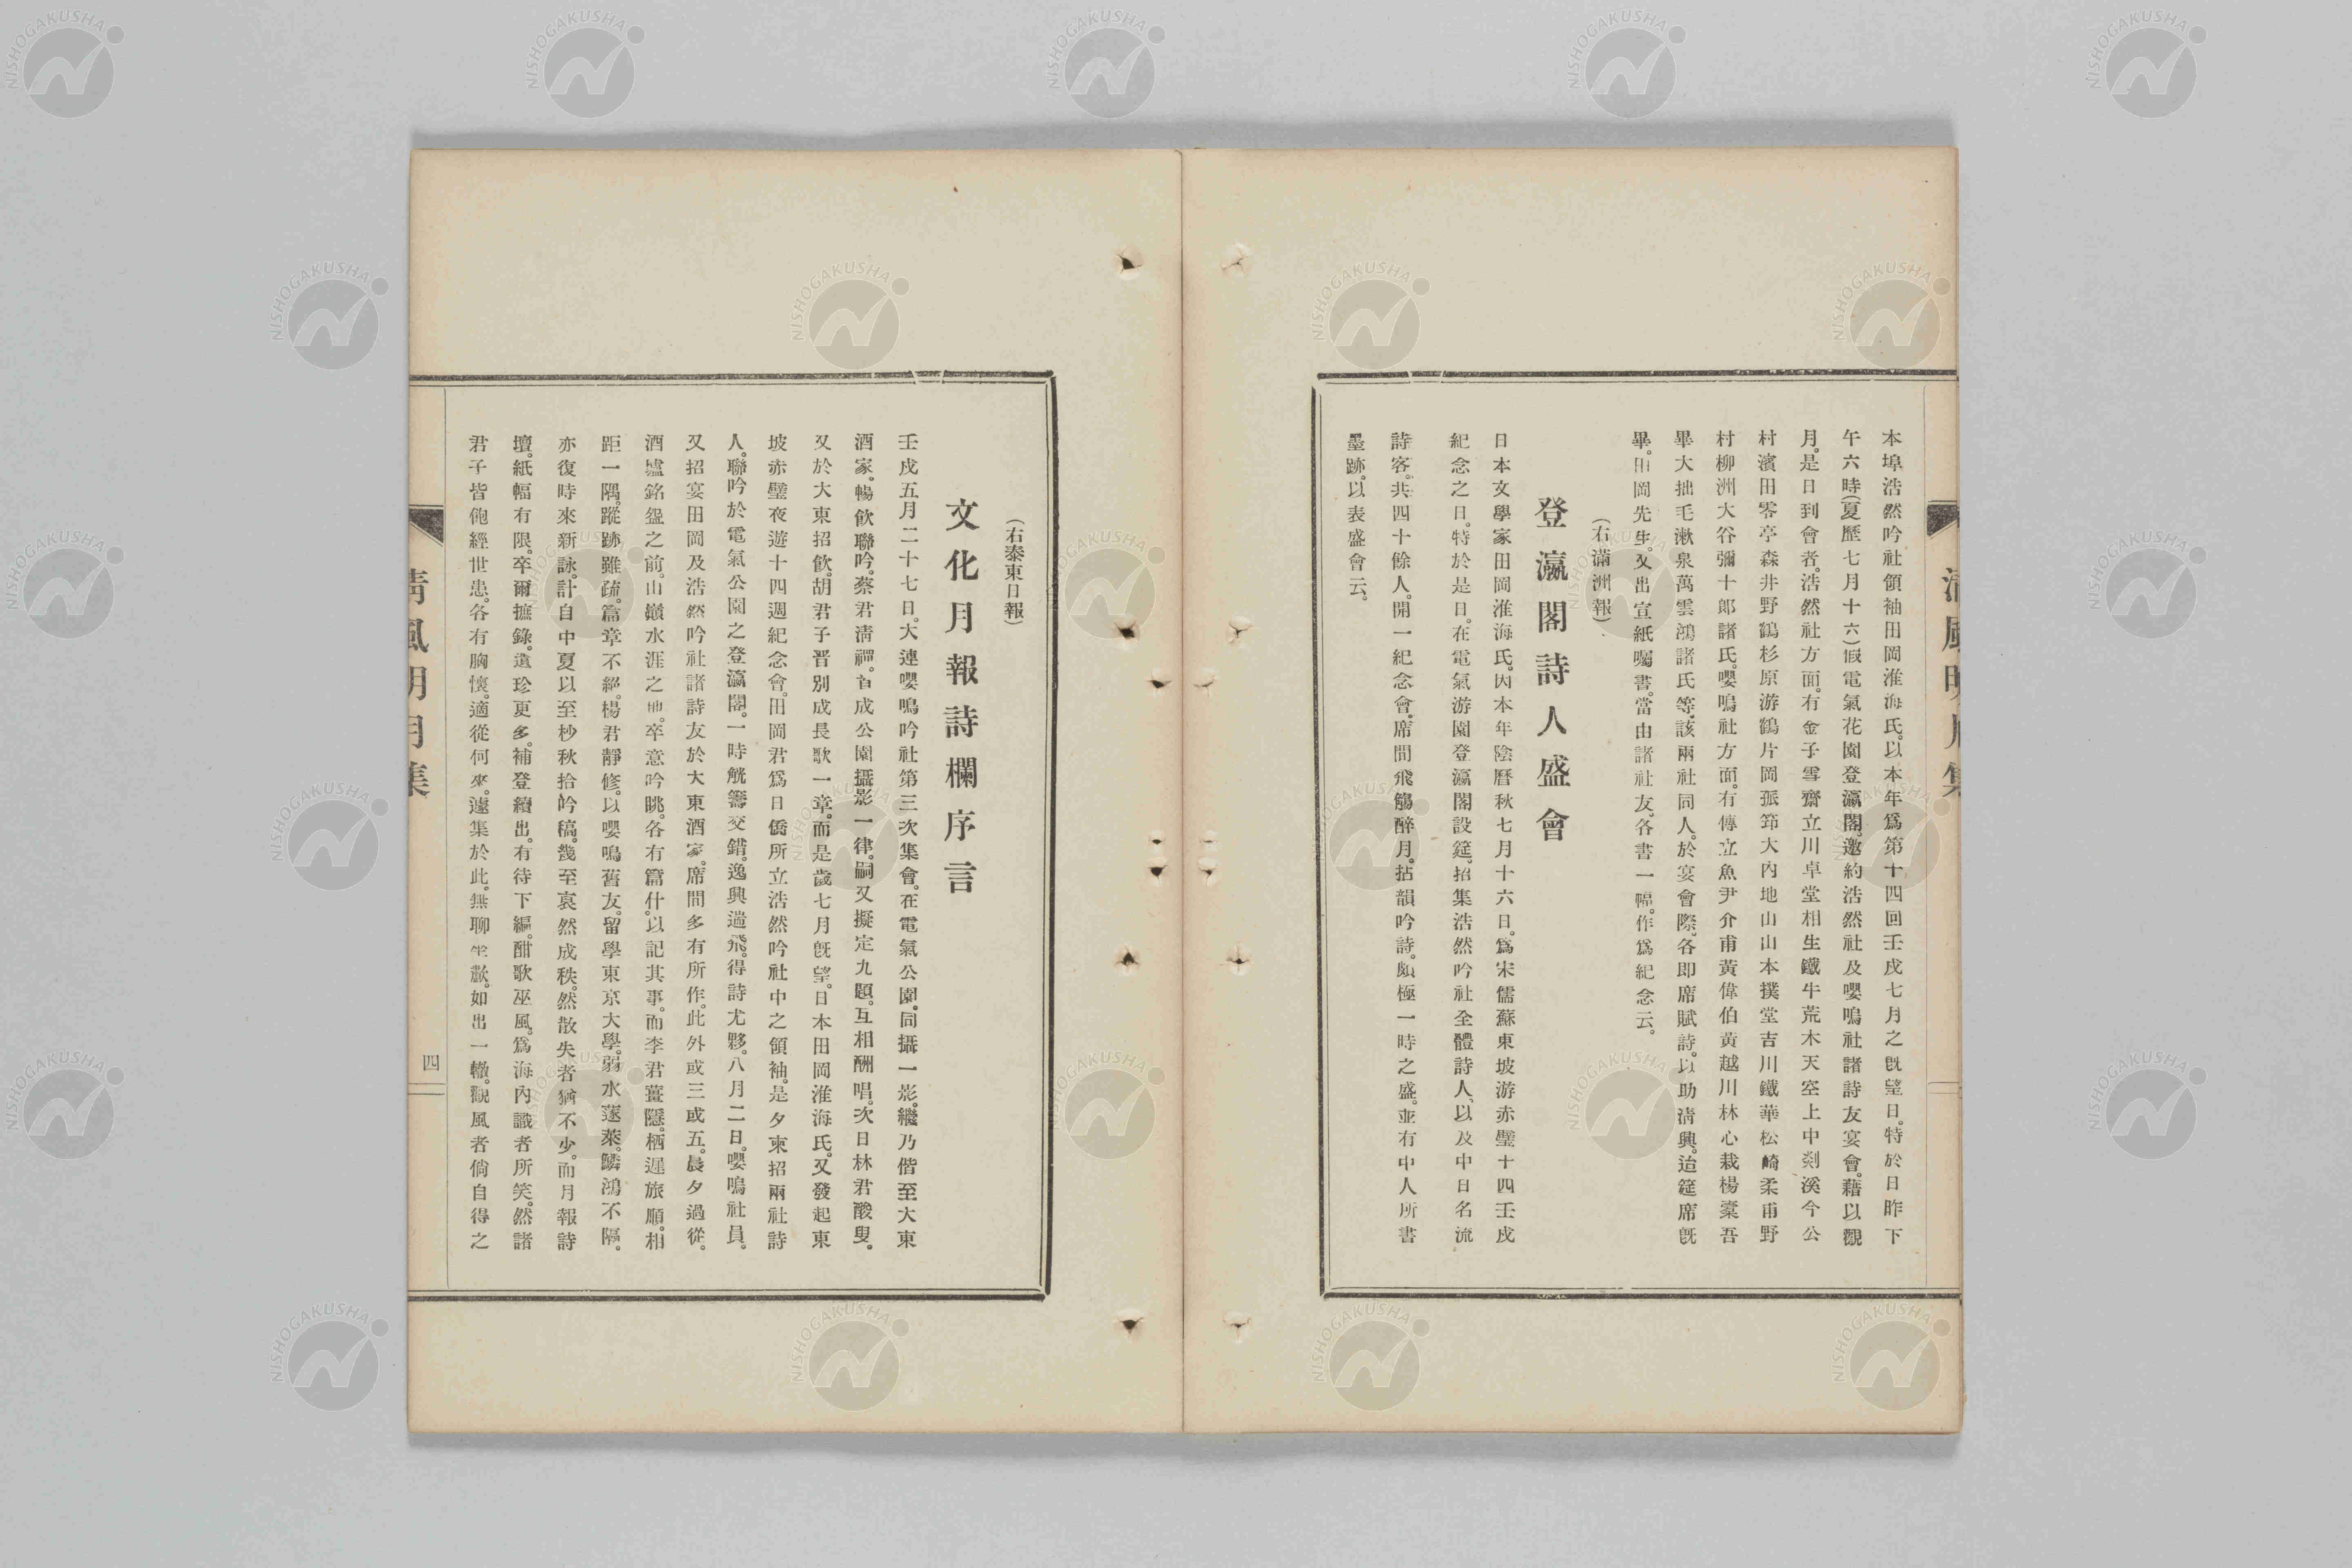 本埠浩然吟社領袖田岡淮海氏。以本年爲第十四回壬戌七月之旣望日。特於日昨下
午六時(夏歷七月十六)假電氣花園登瀛閣。邀約浩然社及嚶鳴社諸詩友宴會。藉以觀
月。是日到會者。浩然社方面。有金子雪齋立川卓堂相生鐵牛荒木天空上中剡溪今公
村濱田零亭森井野鶴杉原游鶴片岡孤筇大內地山山本撲堂吉川鐵華松崎柔甫野
村柳洲大谷彌十郞諸氏。嚶鳴社方面。有傳立魚尹介甫黃偉伯黃越川林心栽楊槖吾
畢大拙毛漱泉萬雲鴻諸氏等。該兩社同人。於宴會際。各卽席賦詩。以助淸興。迨筵席旣
畢。田岡先生。又出宣紙囑書。當由諸社友。各書一幅。作爲紀念云。
(右滿洲報)
登瀛閣詩人盛會
日本文學家田岡淮海氏。因本年陰曆秋七月十六日。爲宋儒蘇東坡游赤壁十四壬戌
紀念之日。特於是日。在電氣游園登瀛閣設筵。招集浩然吟社全體詩人。以及中日名流
詩客。共四十餘人。開一紀念會。席間飛觴醉月。拈韻吟詩。頗極一時之盛。並有中人所書
墨跡。以表盛會云。
(右泰東日報)
文化月報詩欄序言
壬戌五月二十七日。大連嚶鳴吟社第三次集會。在電氣公園。同攝一影。繼乃偕至大東
酒家。暢飮聯吟。蔡君淸禪。首成公園攝影一律。嗣又擬定九題。互相酬唱。次日林君酸叟。
又於大東招飮。胡君子晋別成長歌一章。而是歲七月旣望。日本田岡淮海氏。又發起東
坡赤壁夜遊十四週紀念會。田岡君爲日僑所立浩然吟社中之領袖。是夕柬招兩社詩
人。聯吟於電氣公園之登瀛閣。一時觥籌交錯。逸興遄飛。得詩尤夥。八月二日。嚶鳴社員。
又招宴田岡及浩然吟社諸詩友於大東酒家。席間多有所作。此外或三或五。晨夕過從。
酒壚銘盌之前。山巓水涯之地。卒意吟眺。各有篇什。以記其事。而李君薑隱。栖遲旅順。相
距一隅。蹤跡雖疏。篇章不絕。楊君靜修。以嚶鳴舊友。留學東京大學。弱水蓬萊。鱗鴻不隔。
亦復時來新詠。計自中夏以至杪秋拾吟稿。幾至裒然成秩。然散失者猶不少。而月報詩
壇。紙幅有限。卒爾摭錄。遺珍更多。補登續出。有待下編。酣歌巫風。爲海內識者所笑。然諸
君子皆飽經世患。各有胸懷。適從何來。遽集於此。無聊坐歎。如出一轍。觀風者倘自得之
淸風明月集
四